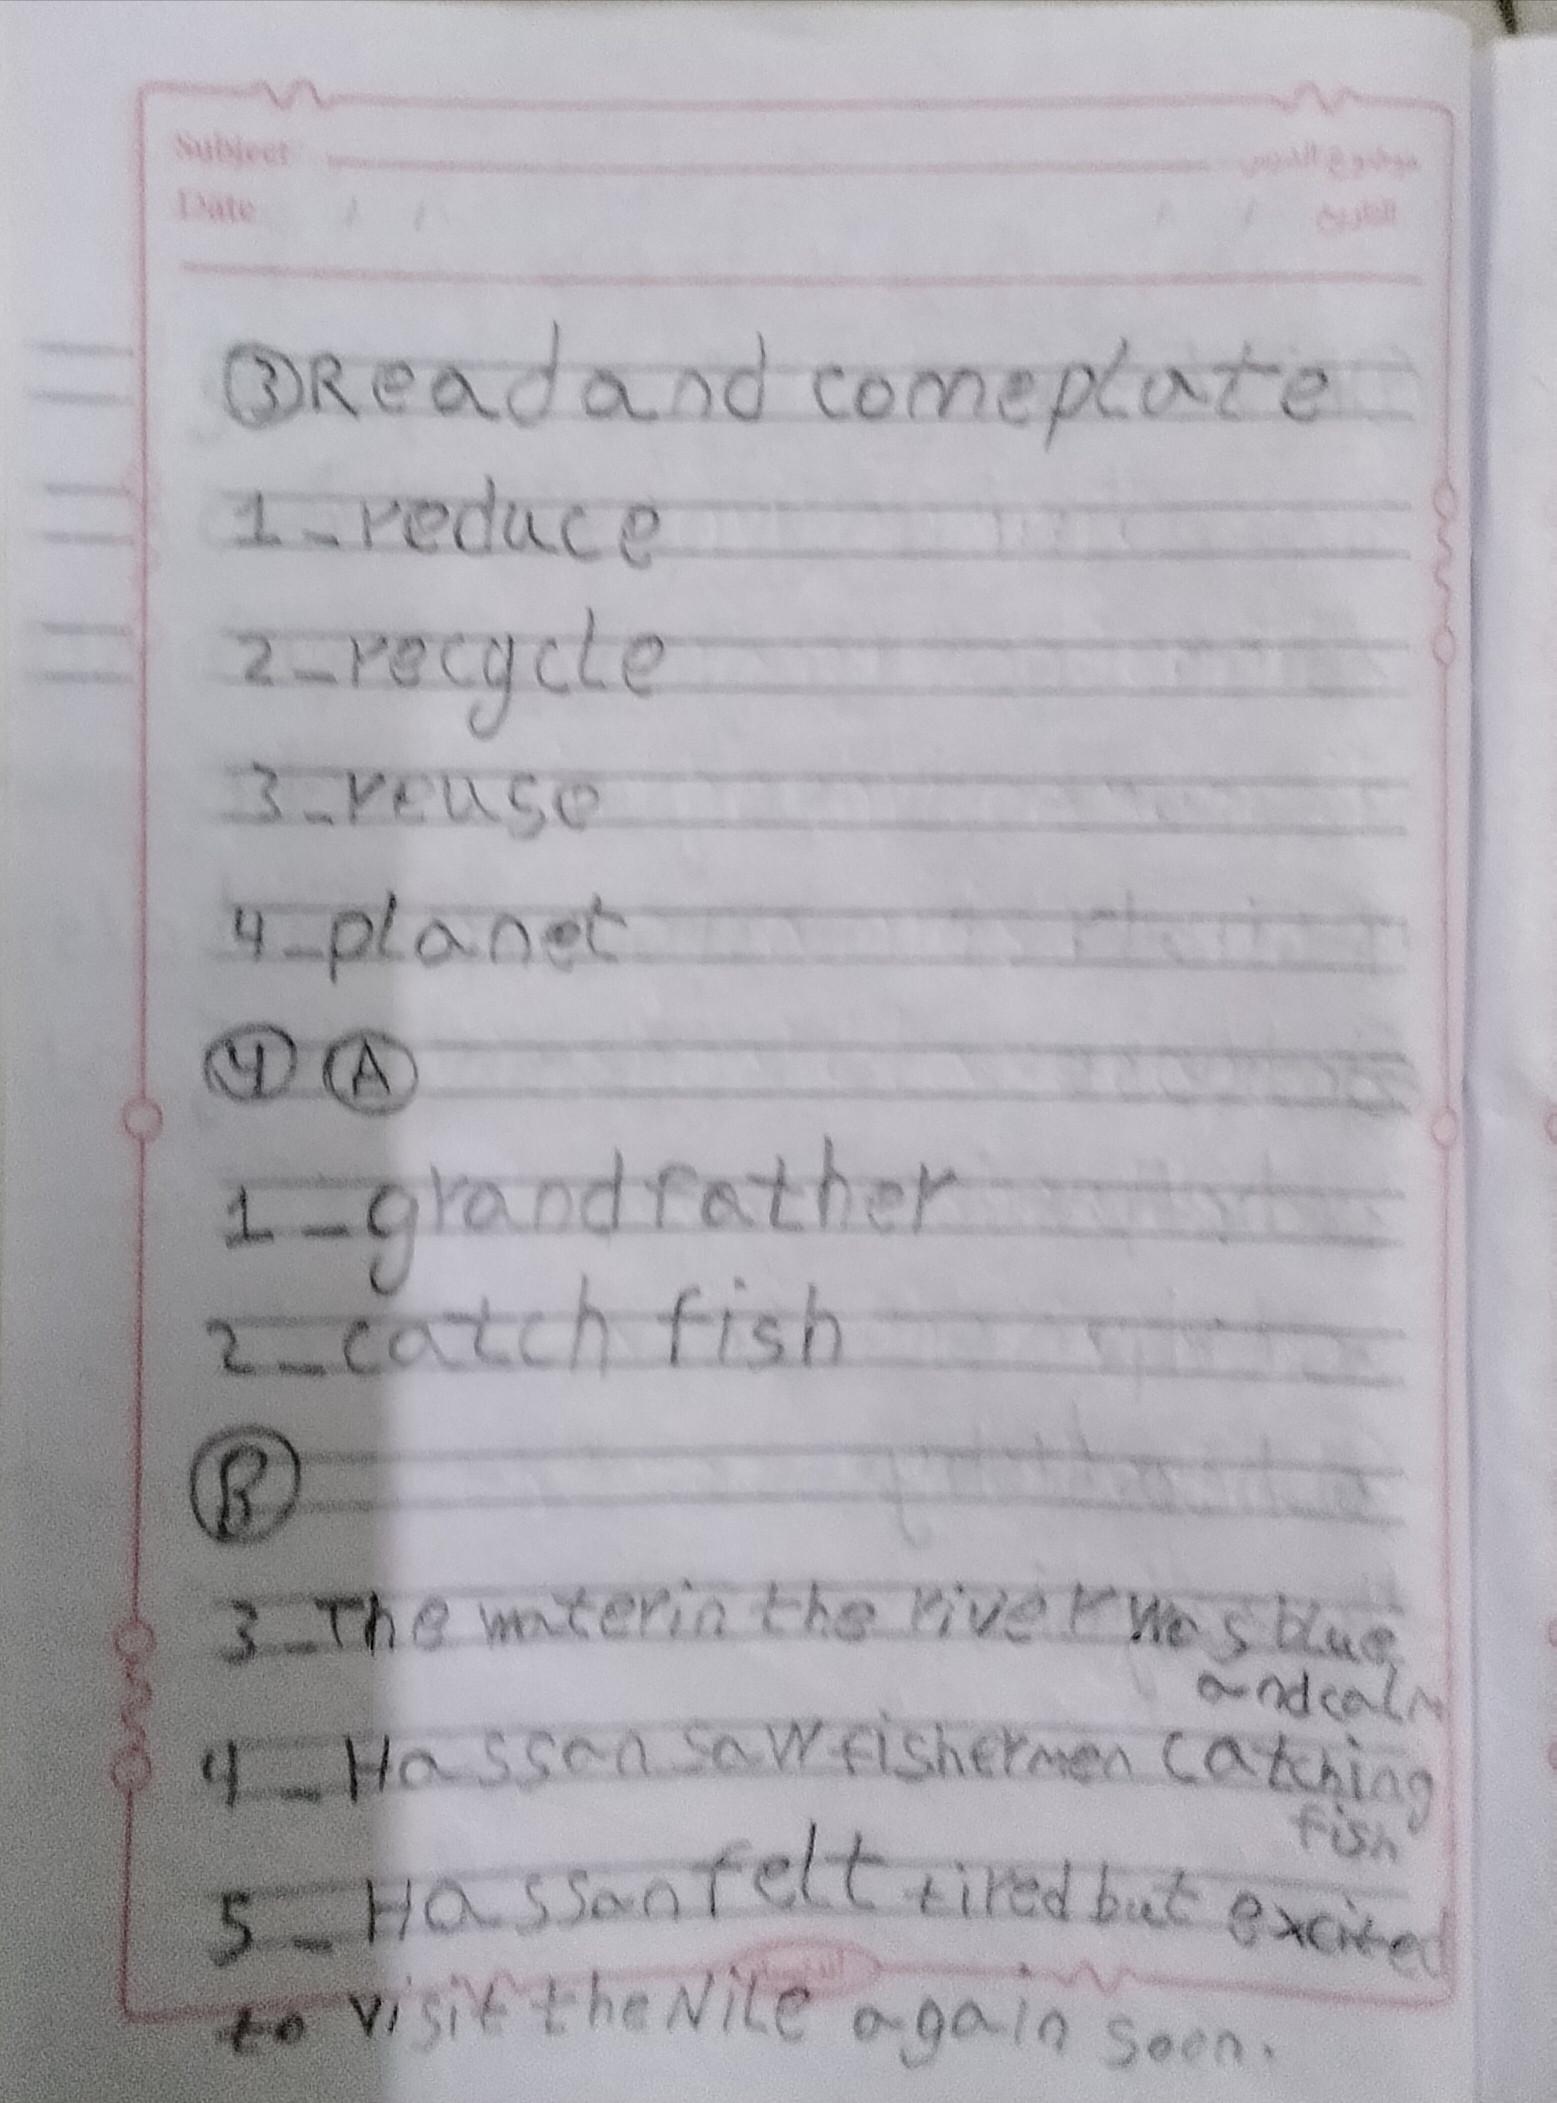 Subject موضوع الدرس
Date / / / / التاريخ
③ Read and comeplate
1_reduce
2_recycle
3_reuse
4_planet
④ Ⓐ
1_grandfather
2_catch fish
Ⓑ
3_The water in the river was blue
and calm
4_Hassan saw fishermen catching
fish
5_Hassan felt tired but excited
to visit the Nile again soon.